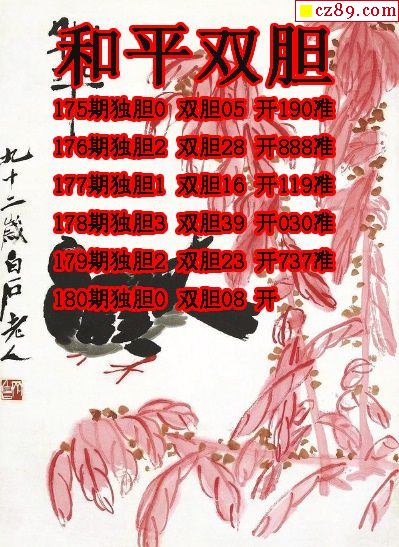 cz89.com
和平双胆
175期独胆0 双胆05 开190准
176期独胆2 双胆28 开888准
177期独胆1 双胆16 开119准
178期独胆3 双胆39 开030准
179期独胆2 双胆23 开737准
180期独胆0 双胆08 开
九十二岁白石老人